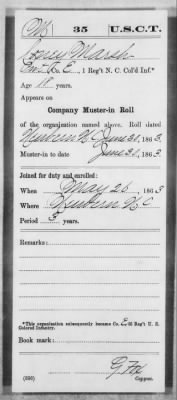 M | 35 | U.S.C.T.
Marsh
Co. E, 1 Reg't N. C. Col'd Inf.*
Age 18 years.
Appears on
Company Muster-in Roll
of the organization named above. Roll dated
Newbern N.C. June 30, 1863.
Muster-in to date June 30, 1863.
Joined for duty and enrolled:
When May 26, 1863
Where Newbern N.C.
Period 3 years.
Remarks:
*This organization subsequently became Co. E, 35 Reg't U. S.
Colored Infantry.
Book mark:
(330) Copyist.